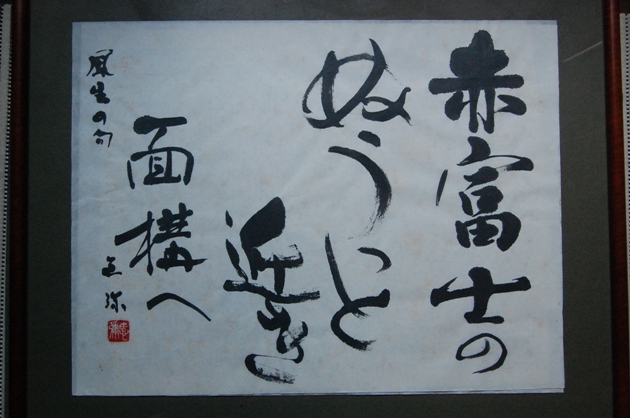 赤富士の
ぬうつと
近き
面構へ
風生の句